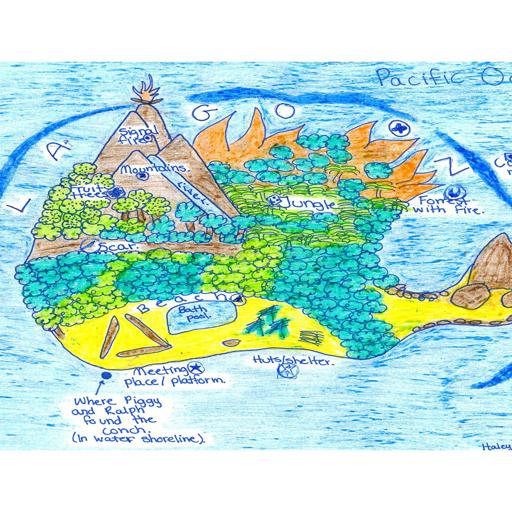 Pacific Oc
L A G O O N
Signal
Fire.
Mountains.
Jungle
Forrest
with Fire.
Scar.
Beach
Bath
pool
Meeting
place/platform.
Huts/shelter.
Where Piggy
and Ralph
found the
conch.
(In water shoreline).
Haley